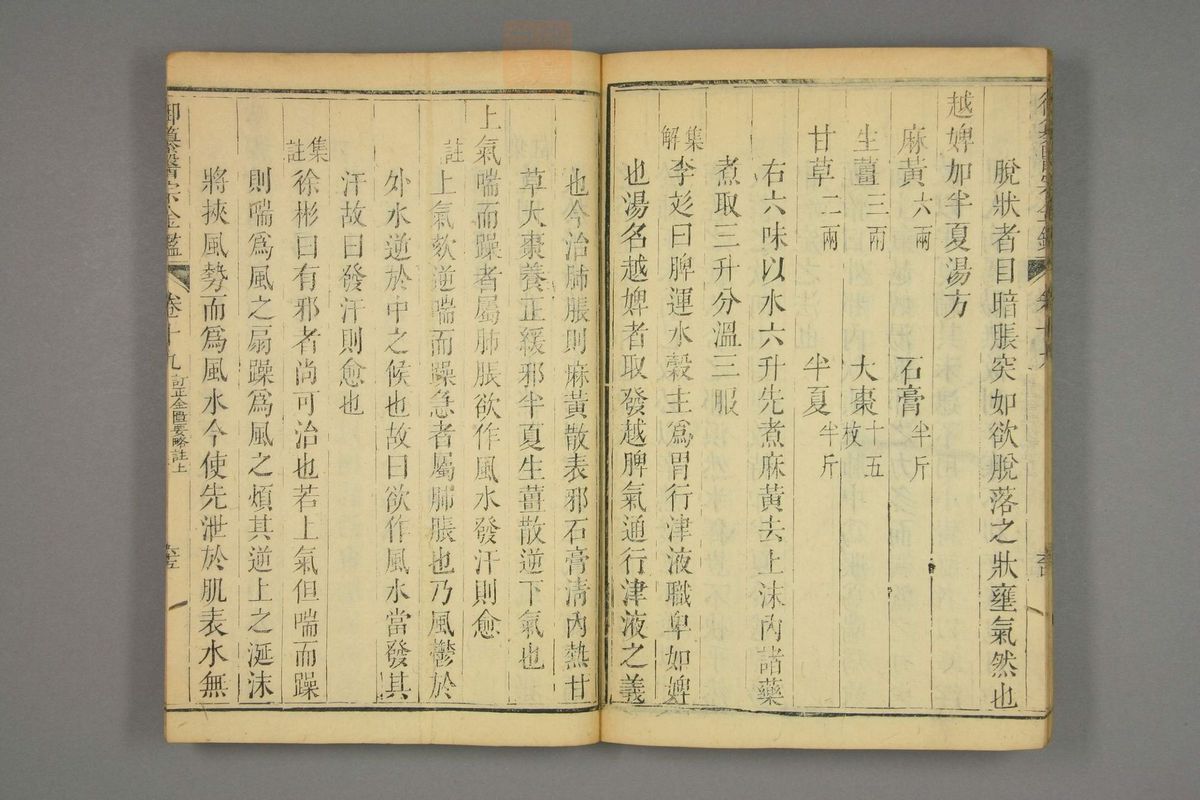 脫狀者目暗脹突如欲脫落之狀壅氣然也
越婢加半夏湯方
麻黃六兩 石膏半斤
生薑三兩 大棗十五枚
甘草二兩 半夏半斤
右六味以水六升先煮麻黃去上沫內諸藥
煮取三升分溫三服
集解 李彣曰脾運水穀主為胃行津液職卑如婢
也湯名越婢者取發越脾氣通行津液之義
也今治肺脹則麻黃散表邪石膏清內熱甘
草大棗養正緩邪半夏生薑散逆下氣也
上氣喘而躁者屬肺脹欲作風水發汗則愈
註 上氣欬逆喘而躁急者屬肺脹也乃風鬱於
外水逆於中之候也故曰欲作風水當發其
汗故曰發汗則愈也
集註 徐彬曰有邪者尚可治也若上氣但喘而躁
則喘為風之扇躁為風之煩其逆上之涎沫
將挾風勢而為風水今使先泄於肌表水無
御纂醫宗金鑑 卷十九 訂正金匱要略註上